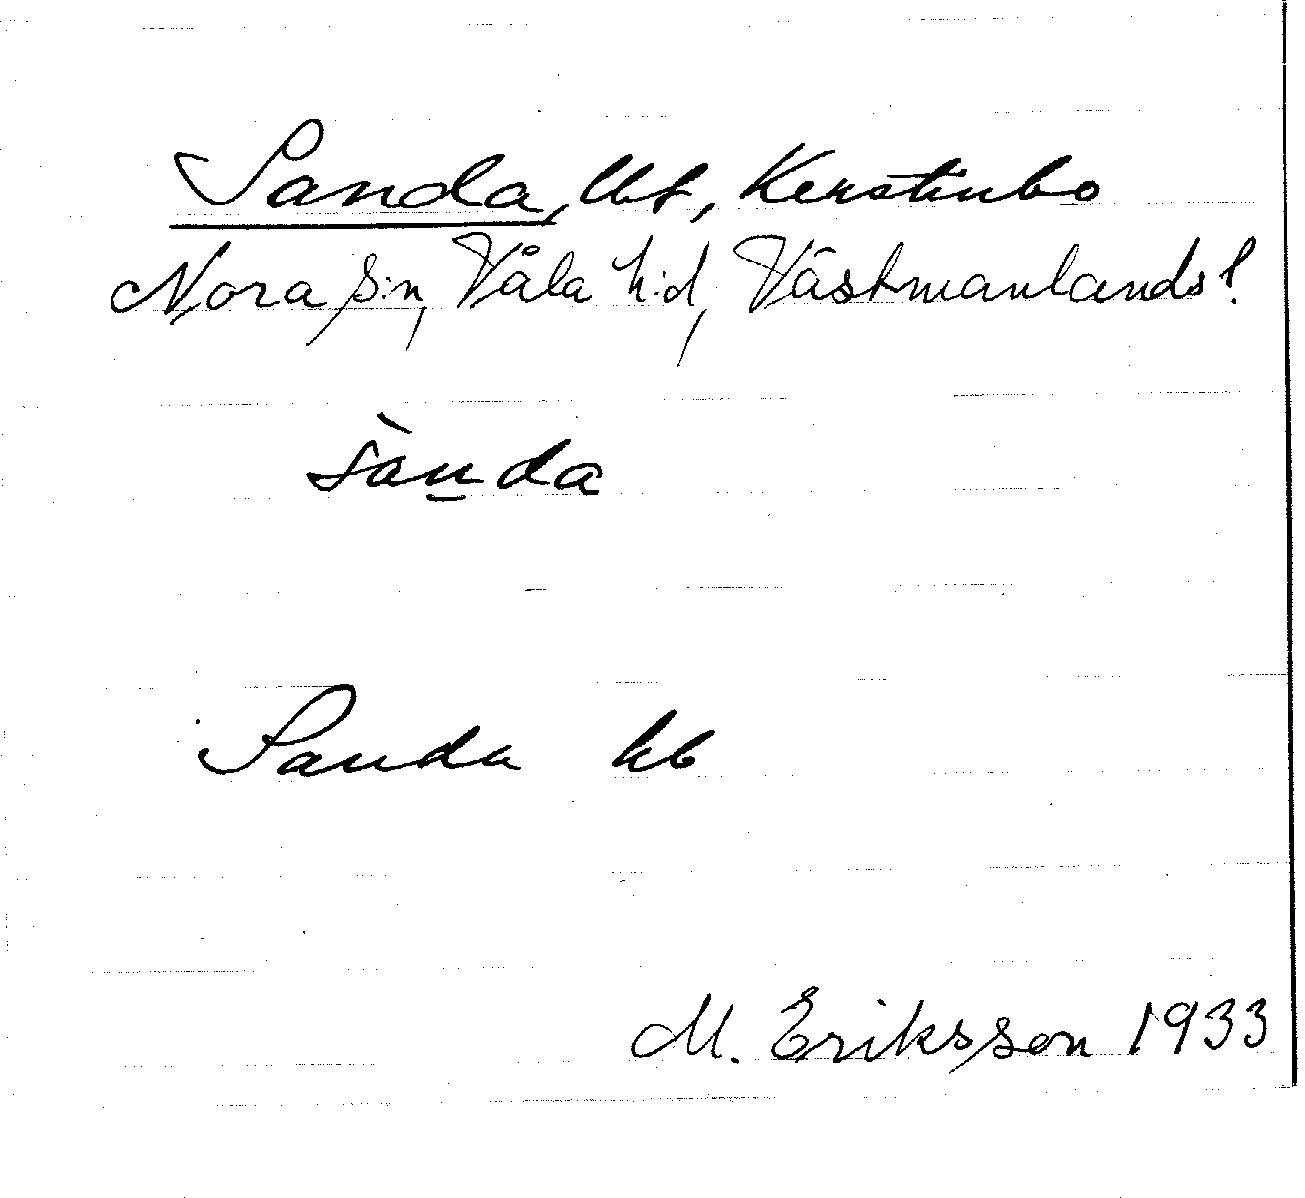 Sanda, lht, Kerstinbo
Nora s:n, Våla h:d, Västmanlands l.
sànda
Sanda hb
M. Eriksson 1933